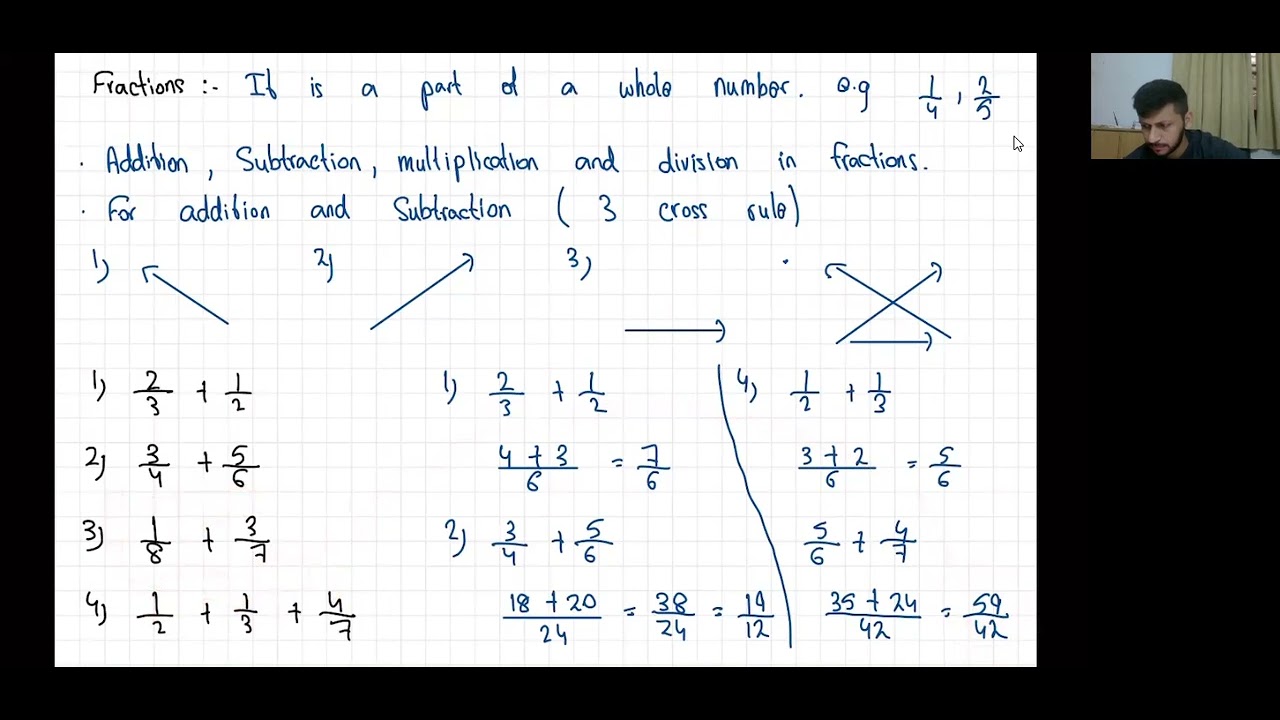 Fractions :- It is a part of a whole number. e.g 1/4 , 2/5
· Addition, Subtraction, multiplication and division in fractions.
· For addition and Subtraction ( 3 cross rule)
1) 2) 3)
1) 2/3 + 1/2
2) 3/4 + 5/6
3) 1/8 + 3/7
4) 1/2 + 1/3 + 4/7
1) 2/3 + 1/2
4 + 3/6 = 7/6
2) 3/4 + 5/6
18 + 20/24 = 38/24 = 19/12
4) 1/2 + 1/3
3 + 2/6 = 5/6
5/6 + 4/7
35 + 24/42 = 59/42